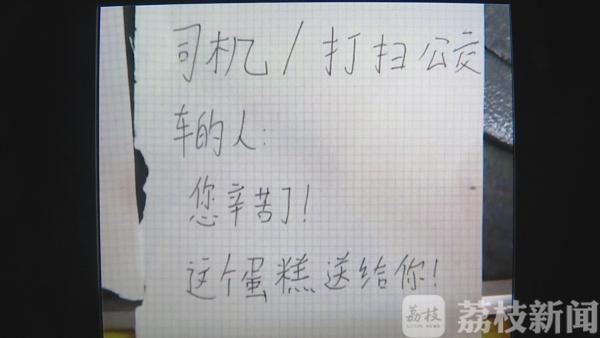 司机/打扫公交
车的人：
您辛苦了！
这个蛋糕送给你！
荔枝
荔枝新闻